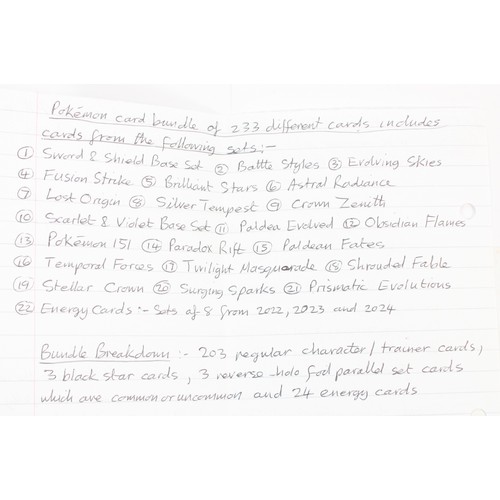 Pokémon card bundle of 233 different cards includes
cards from the following sets:-
① Sword & Shield Base Set ② Battle Styles ③ Evolving Skies
④ Fusion Strike ⑤ Brilliant Stars ⑥ Astral Radiance
⑦ Lost Origin ⑧ Silver Tempest ⑨ Crown Zenith
⑩ Scarlet & Violet Base Set ⑪ Paldea Evolved ⑫ Obsidian Flames
⑬ Pokémon 151 ⑭ Paradox Rift ⑮ Paldean Fates
⑯ Temporal Forces ⑰ Twilight Masquerade ⑱ Shrouded Fable
⑲ Stellar Crown ⑳ Surging Sparks ㉑ Prismatic Evolutions
㉒ Energy Cards :- Sets of 8 from 2022, 2023 and 2024
Bundle Breakdown :- 203 regular character/trainer cards,
3 black star cards, 3 reverse-holo parallel set cards
which are common or uncommon and 24 energy cards